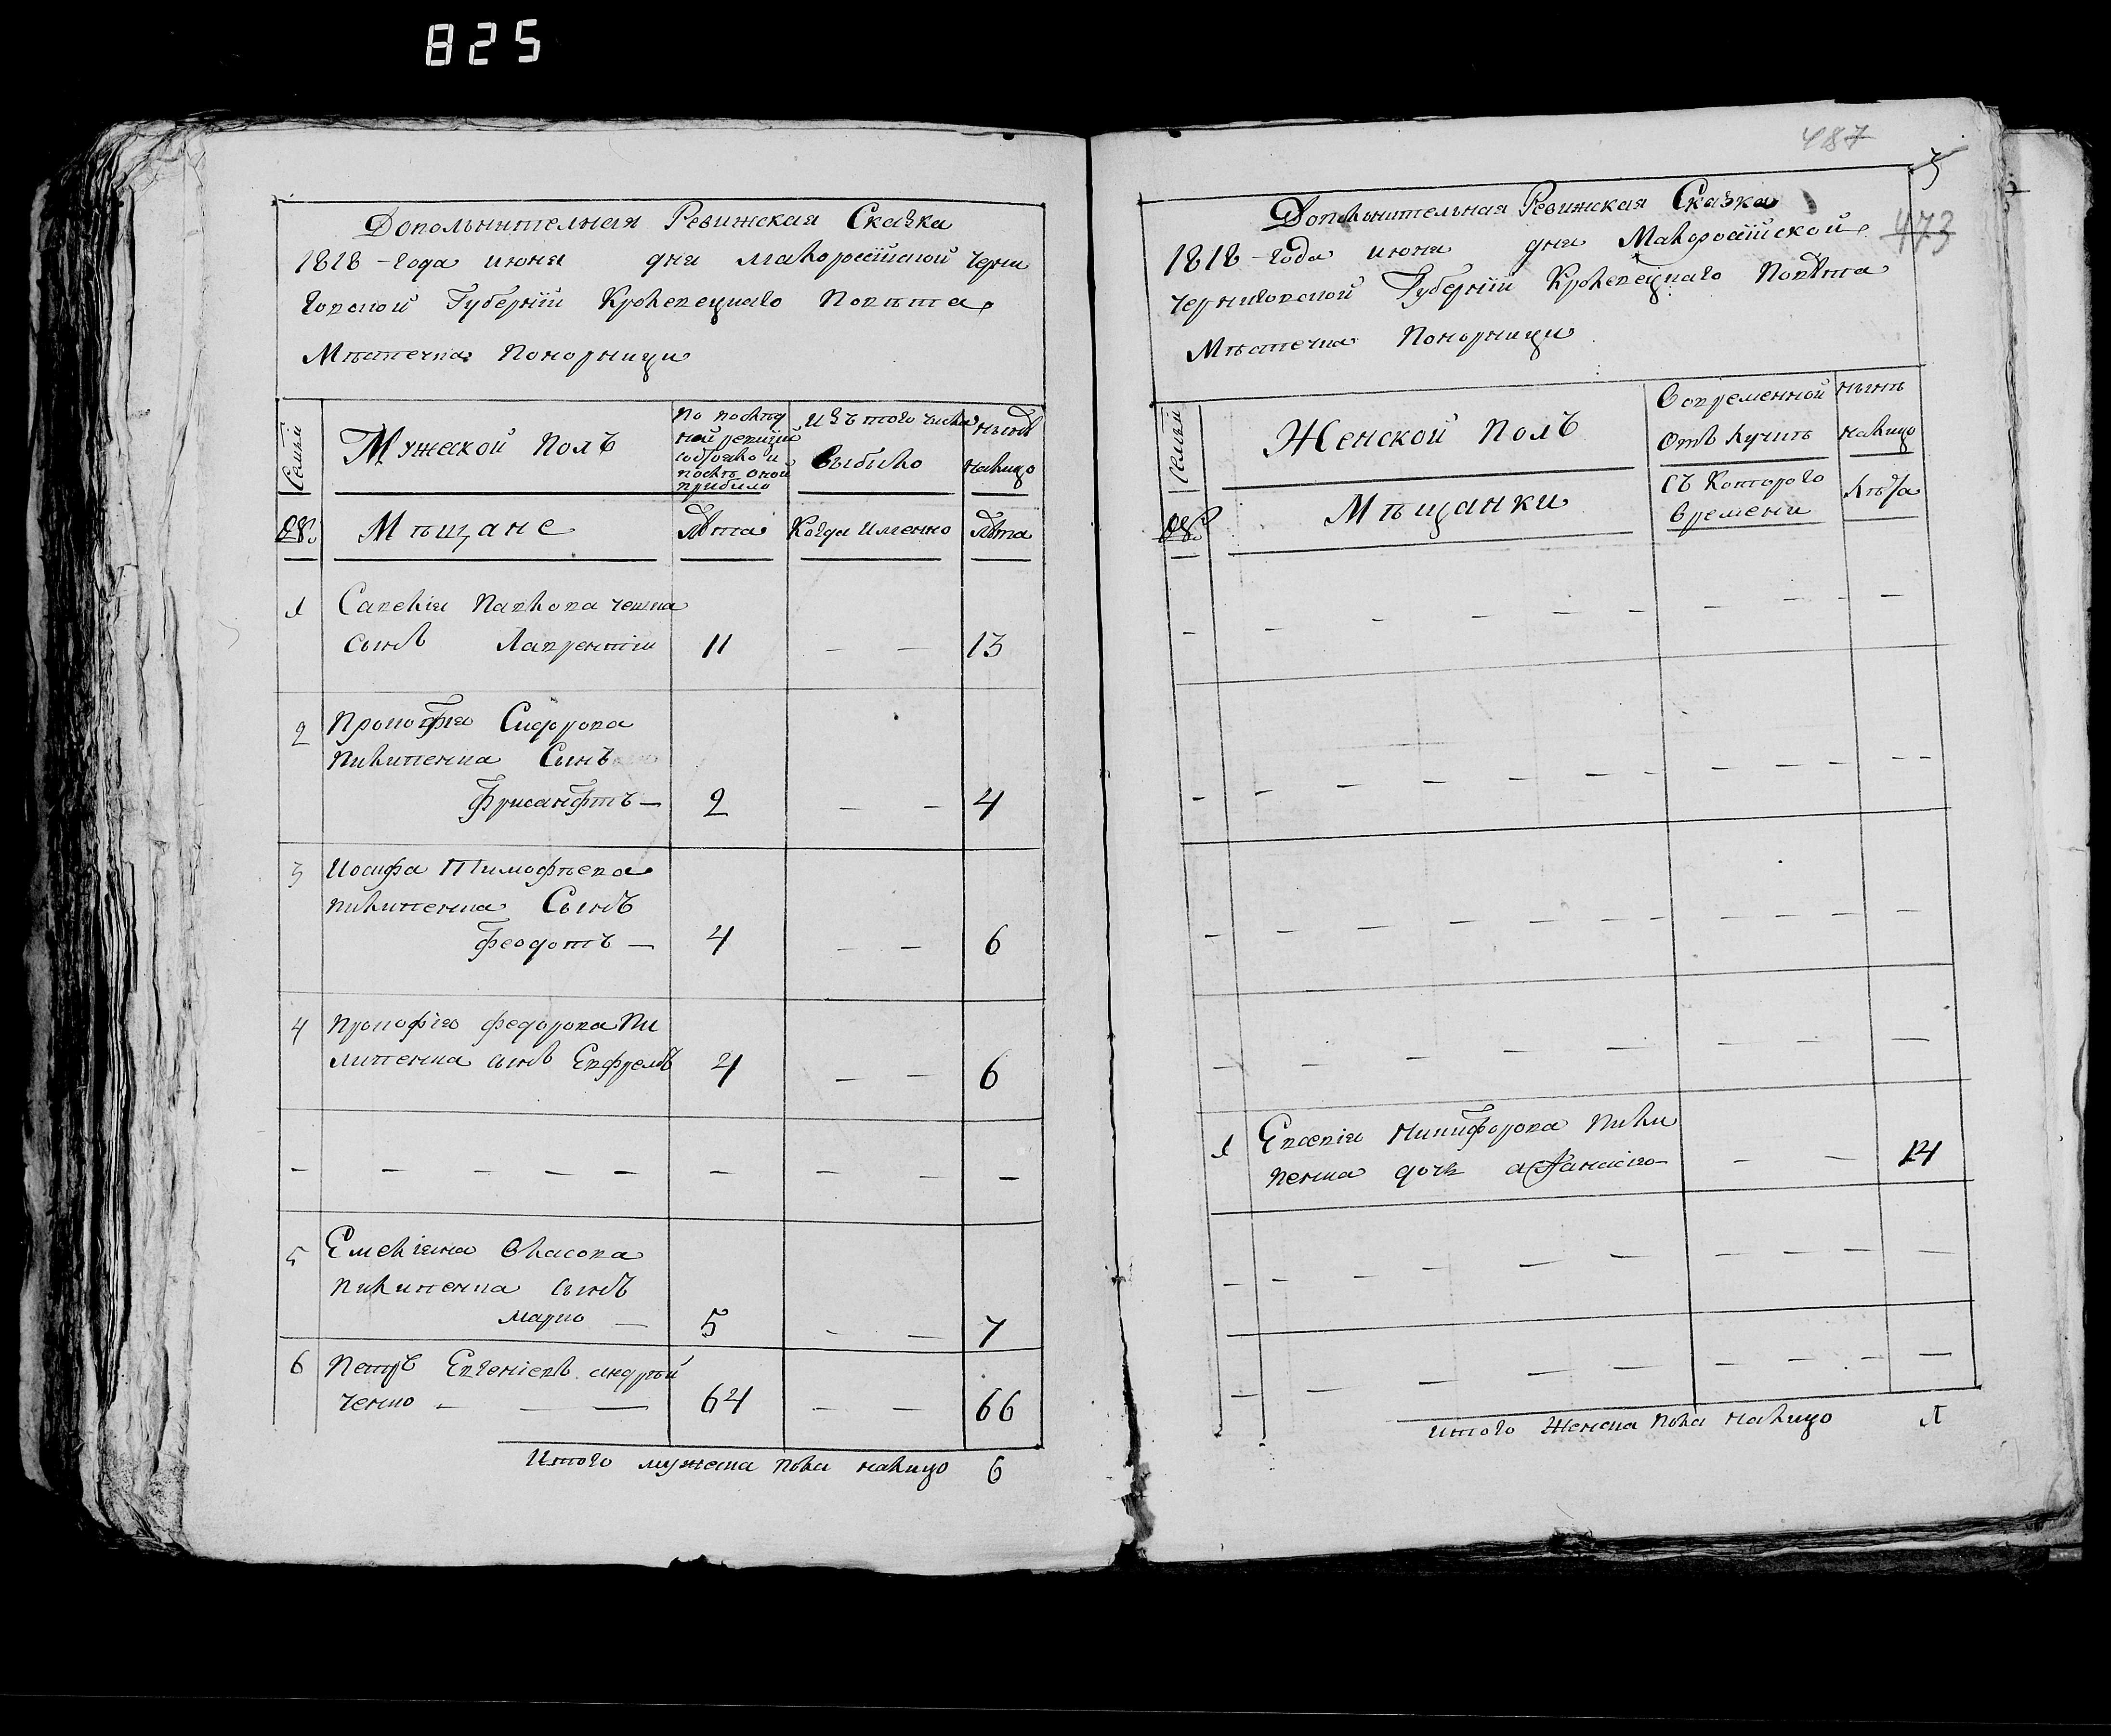 825
Дополнительная Ревижская Сказка
1818 – года июня дня малороссійской черни
говской Губерніи Кролевецкаго Повѣта
Мѣстечка Понорници
Семьи
Мужеской полъ
по послѣд
ней ревизіи
состояло и
послѣ оной
прибыло
Изъ того числа
выбыло
нынѣ
налицо
№.
Мѣщане
Лѣта
Когда именно
Лѣта
1 Савелія Павлова
сынъ Лаврентій 11 – – 13
2 Прокофія Сидорова
Пилипенка Синъ
Фрисанфтъ – 2 – – 4
3 Иосифа Тимофѣева
пилипенка Сынъ
Феодотъ – 4 – – 6
4 прокофія федорова Пи
липенка сынъ Евфремъ 4 – – 6
– – – – – – – – –
5 Емеліяна Власова
пилипенка сынъ
марко – 5 – – 7
6 Петръ Евгеніевъ андрѣй
ченко – – – 64 – – 66
Итого мужеска пола налицо 6
487
3
473
Дополнительная Ревижская Сказка
1818 – года июня дня Малоросійской
черниговской Губерніи Кролевецкаго Повѣта
Мѣстечка Понорници
Семьи
Женской полъ
Во временной
отлучкѣ
нынѣ
налицо
№.
Мѣщанки
съ Которого
времени
лѣта
1 Евсевія Никифорова пили
пенка дочь афанасія – – – 14
итого Женска пола налицо 1